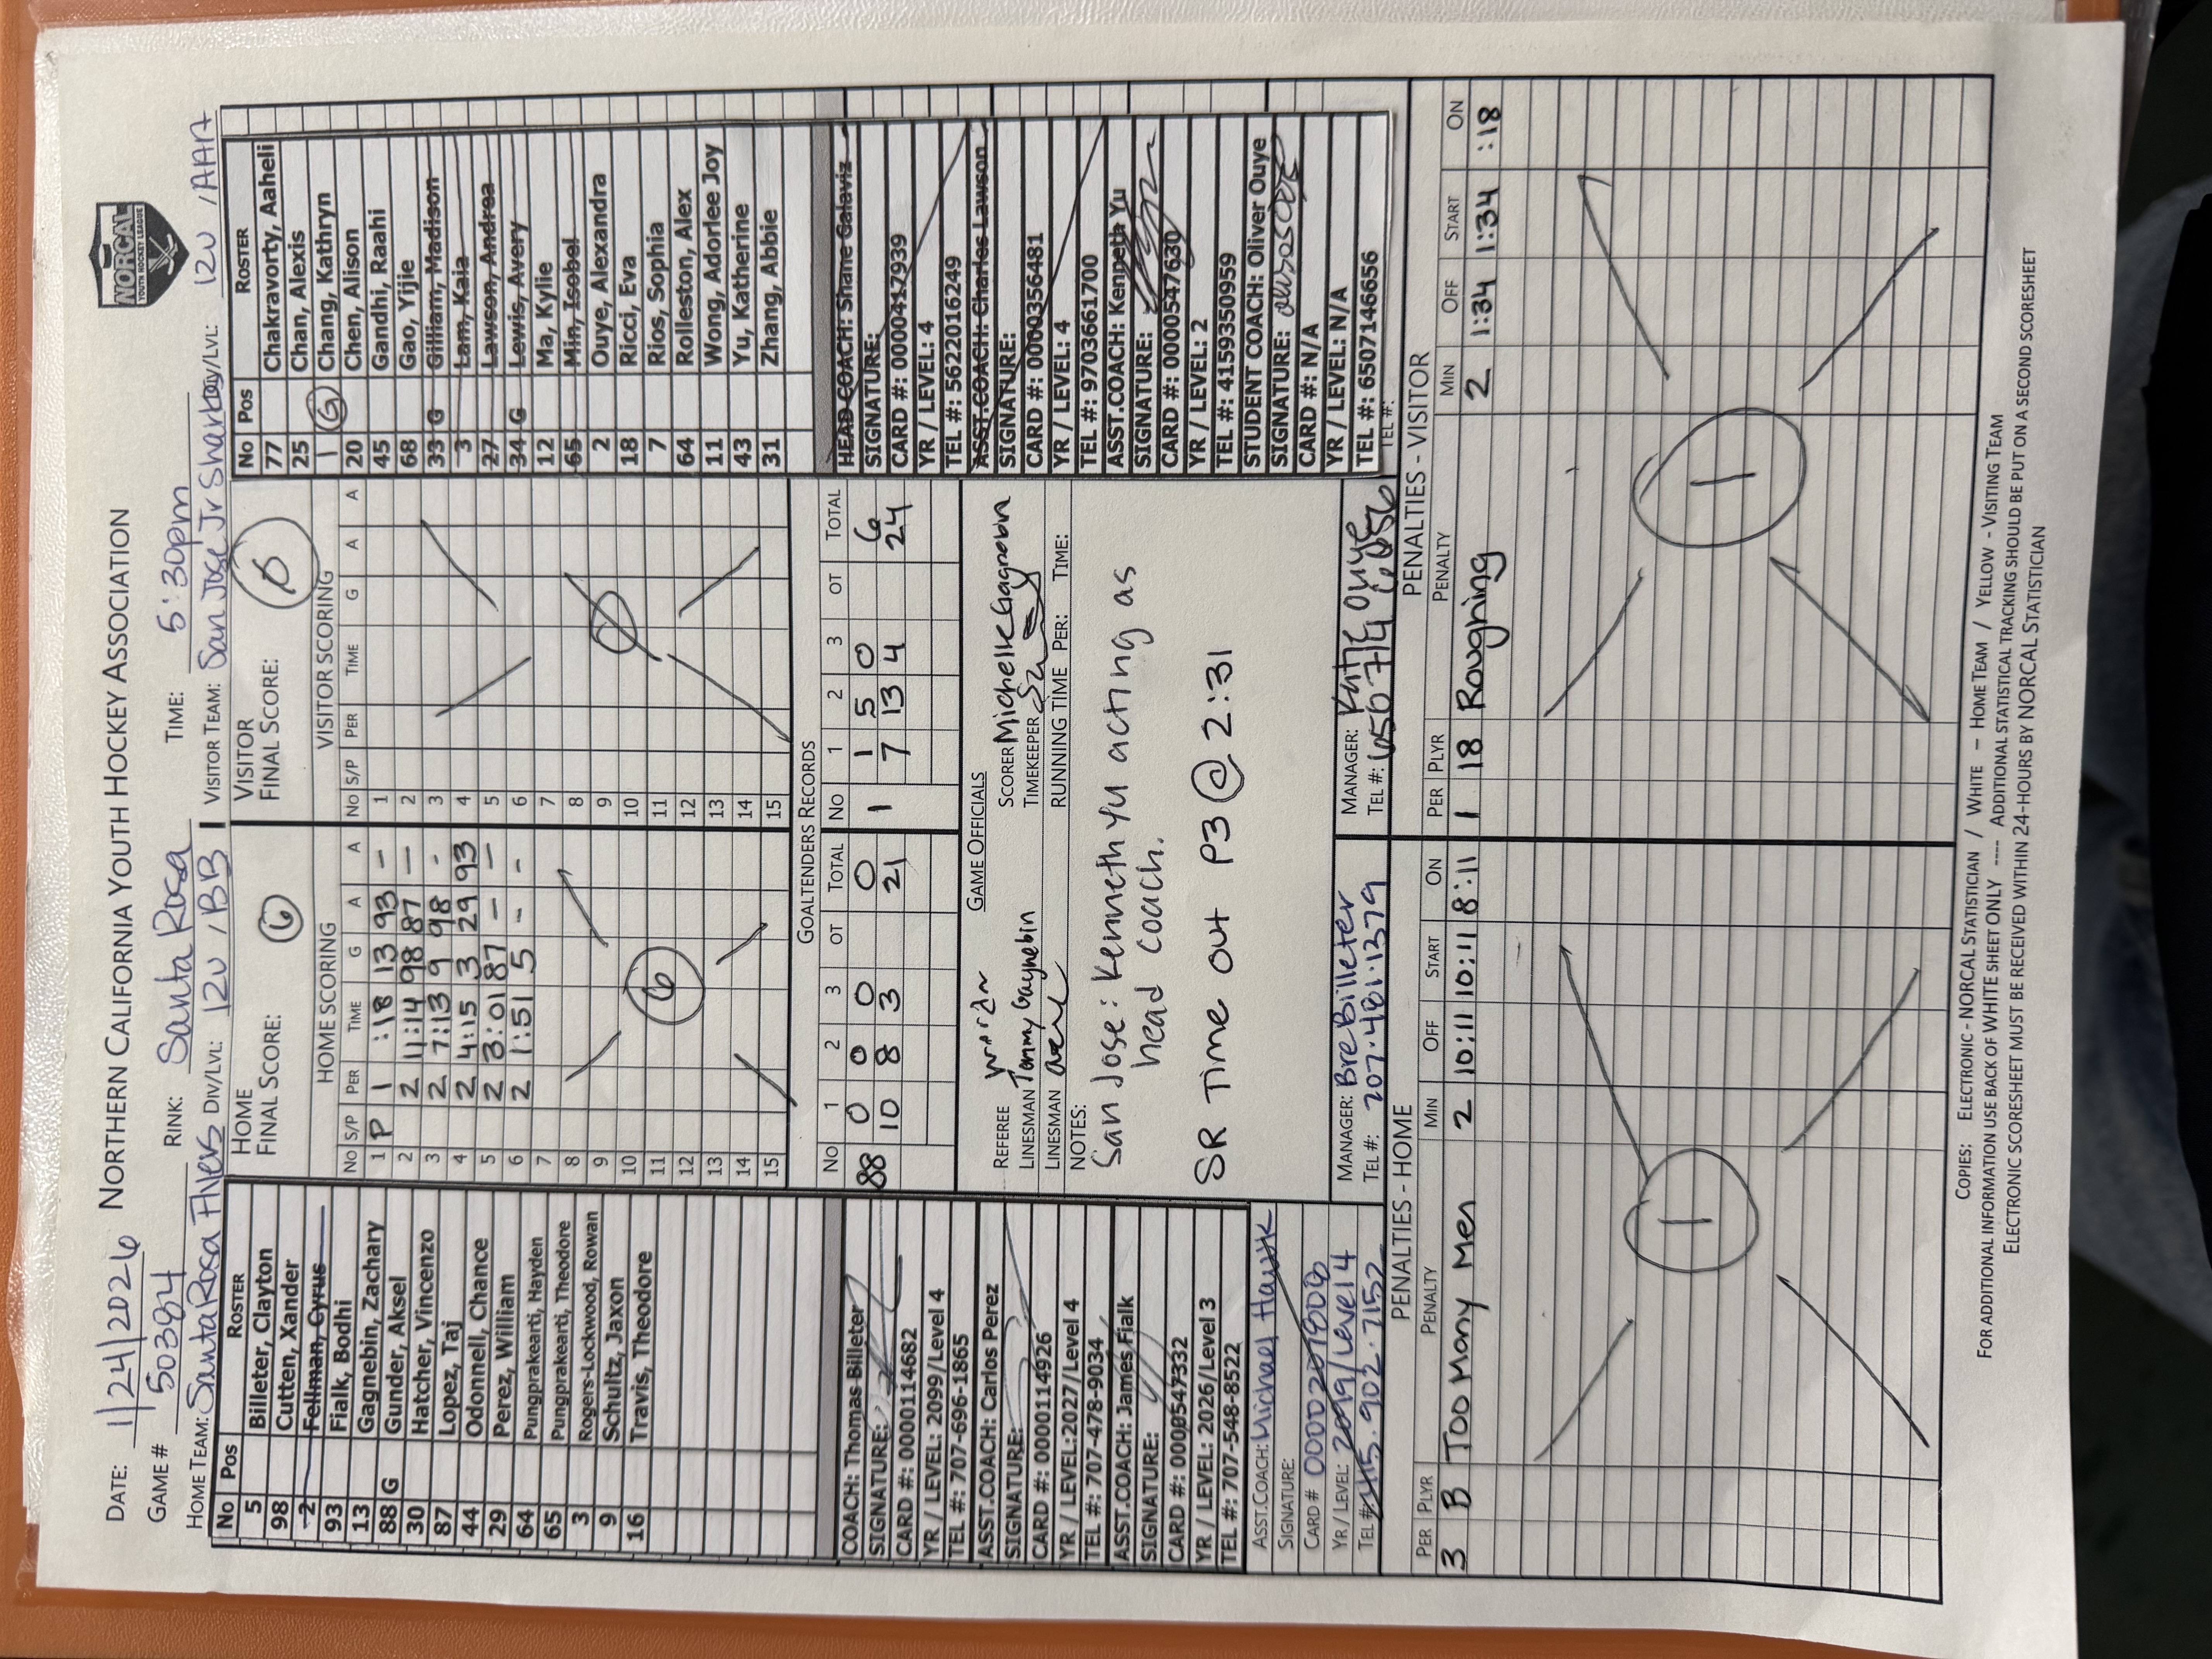 NORCAL
YOUTH HOCKEY LEAGUE
NORTHERN CALIFORNIA YOUTH HOCKEY ASSOCIATION
DATE: 1/24/2026
GAME # 50394 RINK: Santa Rosa TIME: 5:30pm
HOME TEAM: Santa Rosa Flyers DIV/LVL: 12U / BB VISITOR TEAM: San Jose Jr Sharks DIV/LVL: 12U / AAA
No Pos ROSTER
5 Billeter, Clayton
98 Cutten, Xander
2 Fellman, Cyrus
93 Fialk, Bodhi
13 Gagnebin, Zachary
88 G Gunder, Aksel
30 Hatcher, Vincenzo
87 Lopez, Taj
44 Odonnell, Chance
29 Perez, William
64 Pungprakearti, Hayden
65 Pungprakearti, Theodore
3 Rogers-Lockwood, Rowan
9 Schultz, Jaxon
16 Travis, Theodore
HOME
FINAL SCORE: 6
HOME SCORING
No S/P PER TIME G A A
1 P 1 :18 13 93 –
2 2 11:14 98 87 –
3 2 7:13 9 98 -
4 2 4:15 3 29 93
5 2 3:01 87 – –
6 2 1:51 5 - -
7
8
9
10
11
12
13
14
15
6
VISITOR
FINAL SCORE: Ø
VISITOR SCORING
No S/P PER TIME G A A
1
2
3
4
5
6
7
8
9
10
11
12
13
14
15
Ø
No Pos ROSTER
77 Chakravorty, Aaheli
25 Chan, Alexis
1 G Chang, Kathryn
20 Chen, Alison
45 Gandhi, Raahi
68 Gao, Yijie
33 G Gilliam, Madison
3 Lam, Kaia
27 Lawson, Andrea
34 G Lewis, Avery
12 Ma, Kylie
65 Min, Isobel
2 Ouye, Alexandra
18 Ricci, Eva
7 Rios, Sophia
64 Rolleston, Alex
11 Wong, Adorlee Joy
43 Yu, Katherine
31 Zhang, Abbie
GOALTENDERS RECORDS
No 1 2 3 OT TOTAL No 1 2 3 OT TOTAL
88 0 0 0 0 1 1 5 0 6
10 8 3 21 7 13 4 24
COACH: Thomas Billeter
SIGNATURE:
CARD #: 0000114682
YR / LEVEL: 2099/Level 4
TEL #: 707-696-1865
ASST.COACH: Carlos Perez
SIGNATURE:
CARD #: 0000114926
YR / LEVEL:2027/Level 4
TEL #: 707-478-9034
ASST.COACH: James Fialk
SIGNATURE:
CARD #: 0000547332
YR / LEVEL: 2026/Level 3
TEL #: 707-548-8522
ASST.COACH: Michael Hawk
SIGNATURE:
CARD #
YR/ LEVEL: 2099/Level 4
TEL #: 415.902.7152
GAME OFFICIALS
REFEREE SCORER Michelle Gagnebin
LINESMAN Tommy Gagnebin TIMEKEEPER
LINESMAN RUNNING TIME PER: TIME:
NOTES:
San Jose: Kenneth Yu acting as
head coach.
SR Time out P3 @ 2:31
MANAGER: Bre Billeter
TEL #: 207.481.1379
MANAGER: Katie Ouye
TEL #: 650 714 6656
HEAD COACH: Shane Galaviz
SIGNATURE:
CARD #: 0000417939
YR / LEVEL: 4
TEL #: 5622016249
ASST.COACH: Charles Lawson
SIGNATURE:
CARD #: 0000356481
YR / LEVEL: 4
TEL #: 9703661700
ASST.COACH: Kenneth Yu
SIGNATURE:
CARD #: 0000547630
YR / LEVEL: 2
TEL #: 4159350959
STUDENT COACH: Oliver Ouye
SIGNATURE:
CARD #: N/A
YR / LEVEL: N/A
TEL #: 6507146656
TEL #:
PENALTIES - HOME
PER PLYR PENALTY MIN OFF START ON
3 B Too Many Men 2 10:11 10:11 8:11
1
PENALTIES - VISITOR
PER PLYR PENALTY MIN OFF START ON
1 18 Roughing 2 1:34 1:34 :18
1
COPIES: ELECTRONIC - NORCAL STATISTICIAN / WHITE – HOME TEAM / YELLOW - VISITING TEAM
FOR ADDITIONAL INFORMATION USE BACK OF WHITE SHEET ONLY ---- ADDITIONAL STATISTICAL TRACKING SHOULD BE PUT ON A SECOND SCORESHEET
ELECTRONIC SCORESHEET MUST BE RECEIVED WITHIN 24-HOURS BY NORCAL STATISTICIAN